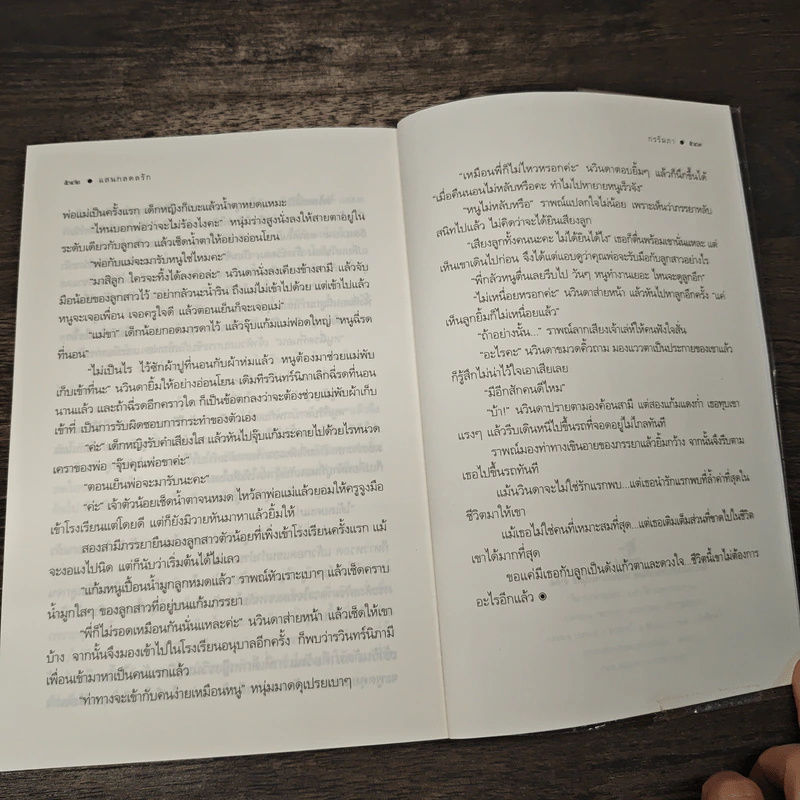 ๕๔๒ ● แสนกลคลรัก
พ่อแม่เป็นครั้งแรก เด็กหญิงก็เบะแล้วน้ำตาหยดแหมะ
“ไหนบอกพ่อว่าจะไม่ร้องไงคะ” หนุ่มร่างสูงนั่งลงให้สายตาอยู่ใน
ระดับเดียวกับลูกสาว แล้วเช็ดน้ำตาให้อย่างอ่อนโยน
“พ่อกับแม่จะมารับหนูใช่ไหมคะ”
“มาสิลูก ใครจะทิ้งได้ลงคอล่ะ” นวินดานั่งลงเคียงข้างสามี แล้วจับ
มือน้อยของลูกสาวไว้ “อย่ากลัวนะน้ำริน ถึงแม่ไม่เข้าไปด้วย แต่เข้าไปแล้ว
หนูจะเจอเพื่อน เจอครูใจดี แล้วตอนเย็นก็จะเจอแม่”
“แม่ขา” เด็กน้อยกอดมารดาไว้ แล้วจุ๊บแก้มแม่ฟอดใหญ่ “หนูฉี่รด
ที่นอน”
“ไม่เป็นไร ไว้ซักผ้าปูที่นอนกับผ้าห่มแล้ว หนูต้องมาช่วยแม่พับ
เก็บเข้าที่นะ” นวินดายิ้มให้อย่างอ่อนโยน เดิมทีรวินทร์นิภาเลิกฉี่รดที่นอน
นานแล้ว และถ้าฉี่รดอีกคราวใด ก็เป็นข้อตกลงว่าจะต้องช่วยแม่พับผ้าเก็บ
เข้าที่ เป็นการรับผิดชอบการกระทำของตัวเอง
“ค่ะ” เด็กหญิงรับคำเสียงใส แล้วหันไปจุ๊บแก้มระคายไปด้วยไรหนวด
เคราของพ่อ “จุ๊บคุณพ่อขาค่ะ”
“ตอนเย็นพ่อจะมารับนะคะ”
“ค่ะ” เจ้าตัวน้อยเช็ดน้ำตาจนหมด ไหว้ลาพ่อแม่แล้วยอมให้ครูจูงมือ
เข้าโรงเรียนแต่โดยดี แต่ก็ยังมิวายหันมาหาแล้วยิ้มให้
สองสามีภรรยายืนมองลูกสาวตัวน้อยที่เพิ่งเข้าโรงเรียนครั้งแรก แม้
จะงอแงไปนิด แต่ก็นับว่าเริ่มต้นได้ไม่เลว
“แก้มหนูเปื้อนน้ำมูกลูกหมดแล้ว” ราพณ์หัวเราะเบาๆ แล้วเช็ดคราบ
น้ำมูกใสๆ ของลูกสาวที่อยู่บนแก้มภรรยา
“พี่ก็ไม่รอดเหมือนกันนั่นแหละค่ะ” นวินดาส่ายหน้า แล้วเช็ดให้เขา
บ้าง จากนั้นจึงมองเข้าไปในโรงเรียนอนุบาลอีกครั้ง ก็พบว่ารวินทร์นิภามี
เพื่อนเข้ามาหาเป็นคนแรกแล้ว
“ท่าทางจะเข้ากับคนง่ายเหมือนหนู” หนุ่มมาดดุเปรยเบาๆ
กรรัมภา ● ๕๔๓
“เหมือนพี่ก็ไม่ไหวหรอกค่ะ” นวินดาตอบยิ้มๆ แล้วก็นึกขึ้นได้
“เมื่อคืนนอนไม่หลับหรือคะ ทำไมไปหายายหนูเร็วจัง”
“หนูไม่หลับหรือ” ราพณ์แปลกใจไม่น้อย เพราะเห็นว่าภรรยาหลับ
สนิทไปแล้ว ไม่คิดว่าจะได้ยินเสียงลูก
“เสียงลูกทั้งคนนะคะ ไม่ได้ยินได้ไง” เธอก็ตื่นพร้อมเขานั่นแหละ แต่
เห็นเขาเดินไปก่อน จึงได้แต่แอบดูว่าคุณพ่อจะรับมือกับลูกสาวอย่างไร
“พี่กลัวหนูตื่นเลยรีบไป วันๆ หนูทำงานเยอะ ไหนจะดูลูกอีก”
“ไม่เหนื่อยหรอกค่ะ” นวินดาส่ายหน้า แล้วหันไปหาลูกอีกครั้ง “แค่
เห็นลูกยิ้มก็ไม่เหนื่อยแล้ว”
“ถ้าอย่างนั้น...” ราพณ์ลากเสียงเจ้าเล่ห์ให้คนฟังใจสั่น
“อะไรคะ” นวินดาขมวดคิ้วถาม มองแววตาเป็นประกายของเขาแล้ว
ก็รู้สึกไม่น่าไว้ใจเอาเสียเลย
“มีอีกสักคนดีไหม”
“บ้า!” นวินดาปรายตามองค้อนสามี แต่สองแก้มแดงก่ำ เธอทุบเขา
แรงๆ แล้วรีบเดินหนีไปขึ้นรถที่จอดอยู่ไม่ไกลทันที
ราพณ์มองท่าทางเขินอายของภรรยาแล้วยิ้มกว้าง จากนั้นจึงรีบตาม
เธอไปขึ้นรถทันที
แม้นวินดาจะไม่ใช่รักแรกพบ...แต่เธอนำรักแรกพบที่ล้ำค่าที่สุดใน
ชีวิตมาให้เขา
แม้เธอไม่ใช่คนที่เหมาะสมที่สุด...แต่เธอเติมเต็มส่วนที่ขาดไปในชีวิต
เขาได้มากที่สุด
ขอแค่มีเธอกับลูกเป็นดังแก้วตาและดวงใจ...ชีวิตนี้เขาไม่ต้องการ
อะไรอีกแล้ว ◉